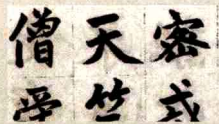 密戒
天竺
僧受